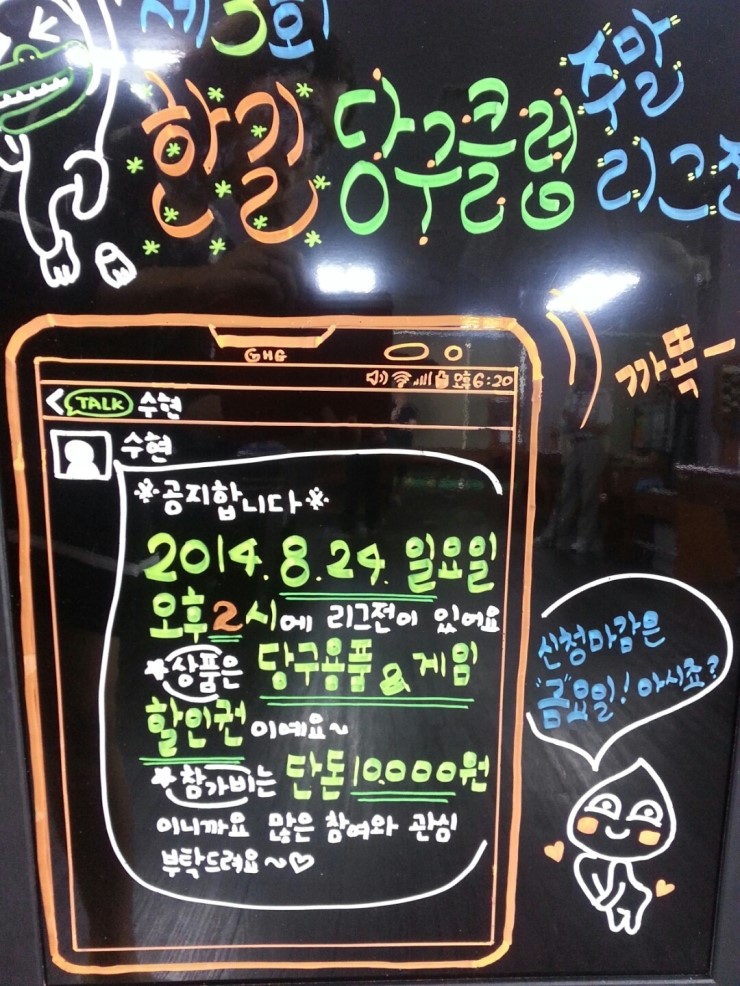 제3회
한길 당구클럽 주말
리그전
GHG
오후6:20
까똑ー
TALK 수현
수현
*공지합니다*
2014. 8. 24. 일요일
오후 2시에 리그전이 있어요
*상품은 당구용품 & 게임
할인권 이예요~
*참가비는 단돈 10.000원
이니까요 많은 참여와 관심
부탁드려요~♡
신청마감은
"금"요일! 아시죠?